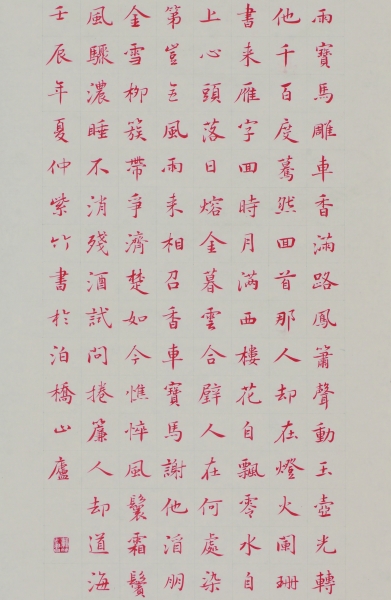 雨寶馬雕車香滿路鳳簫聲動玉壺光轉
他千百度驀然回首那人却在燈火闌珊
書来雁字回時月滿西樓花自飄零水自
上心頭落日熔金暮雲合璧人在何處染
第豈无風雨来相召香車寶馬謝他酒朋
金雪柳簇帶爭濟楚如今憔悴風鬟霜鬢
風驟濃睡不消殘酒試問捲簾人却道海
壬辰年夏仲紫竹書於泊橋山廬